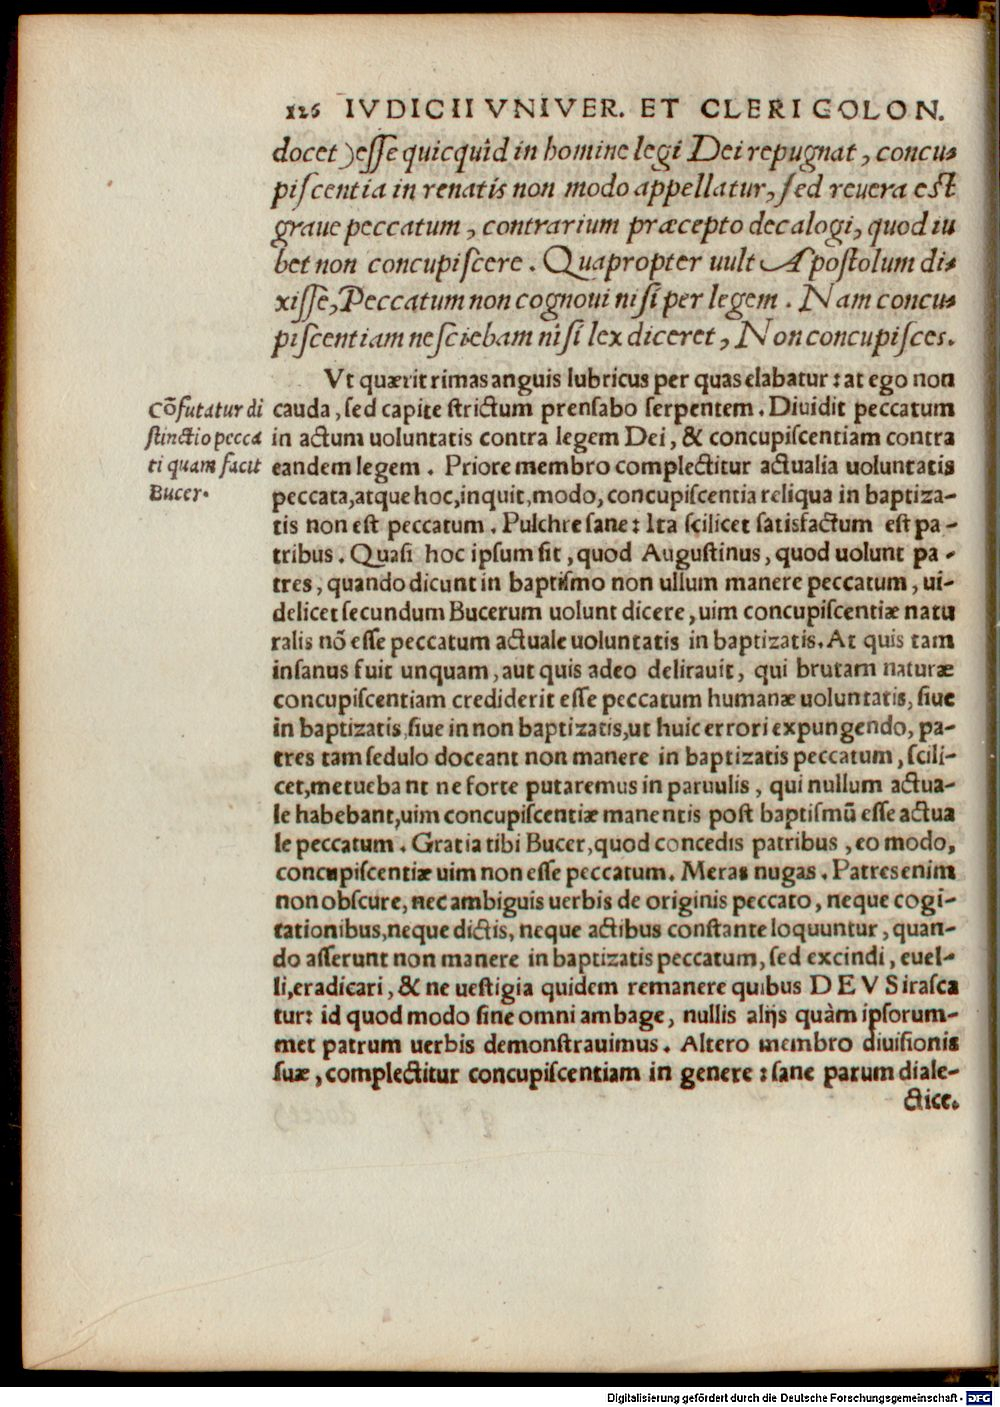 126 IVDICII VNIVER. ET CLERI COLON.
docet) esse quicquid in homine legi Dei repugnat, concu-
piscentia in renatis non modo appellatur, sed reuera est
graue peccatum, contrarium præcepto decalogi, quod iu
bet non concupiscere. Quapropter uult Apostolum di-
xisse, Peccatum non cognoui nisi per legem. Nam concu-
piscentiam nesciebam nisi lex diceret, Non concupisces.
Vt quærit rimas anguis lubricus per quas elabatur: at ego non
cauda, sed capite strictum prensabo serpentem. Diuidit peccatum
in actum uoluntatis contra legem Dei, & concupiscentiam contra
eandem legem. Priore membro complectitur actualia uoluntatis
peccata, atque hoc, inquit, modo, concupiscentia reliqua in baptiza-
tis non est peccatum. Pulchre sane: Ita scilicet satisfactum est pa-
tribus. Quasi hoc ipsum sit, quod Augustinus, quod uolunt pa-
tres, quando dicunt in baptismo non ullum manere peccatum, ui-
delicet secundum Bucerum uolunt dicere, uim concupiscentiæ natu
ralis nõ esse peccatum actuale uoluntatis in baptizatis. At quis tam
insanus fuit unquam, aut quis adeo delirauit, qui brutam naturæ
concupiscentiam crediderit esse peccatum humanæ uoluntatis, siue
in baptizatis, siue in non baptizatis, ut huic errori expungendo, pa-
tres tam sedulo doceant non manere in baptizatis peccatum, scili-
cet, metuebant ne forte putaremus in paruulis, qui nullum actua-
le habebant, uim concupiscentiæ manentis post baptismũ esse actua
le peccatum. Gratia tibi Bucer, quod concedis patribus, eo modo,
concupiscentiæ uim non esse peccatum. Meras nugas. Patres enim
non obscure, nec ambiguis uerbis de originis peccato, neque cogi-
tationibus, neque dictis, neque actibus constante loquuntur, quan-
do asserunt non manere in baptizatis peccatum, sed excindi, euel-
li, eradicari, & ne uestigia quidem remanere quibus DEVS irasca
tur: id quod modo sine omni ambage, nullis alijs quàm ipsorum-
met patrum uerbis demonstrauimus. Altero membro diuisionis
suæ, complectitur concupiscentiam in genere: sane parum diale-
ctice.
Cõfutatur di
stinctio pecca
ti quam facit
Bucer.
Digitalisierung gefördert durch die Deutsche Forschungsgemeinschaft - DFG